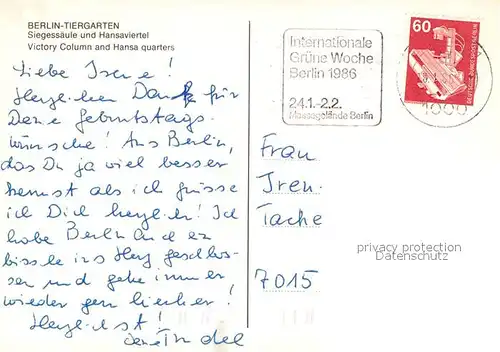 BERLIN-TIERGARTEN
Siegessäule und Hansaviertel
Victory Column and Hansa quarters
Liebe Irene!
Herzlichen Dank für
Deine Geburtstags
wünsche! Aus Berlin,
das Du ja viel besser
kennst als ich grüsse
ich Dich herzlich! Ich
habe Berlin auch ein
bissle ins Herz geschlos-
sen und gehe immer
wieder gern hierher!
Herzlichst!
Deine
Internationale
Grüne Woche
Berlin 1986
24.1.-2.2.
Messegelände Berlin
60
DEUTSCHE BUNDESPOST BERLIN
1000
Frau
Iren.
Tache
7015
privacy protection
Datenschutz